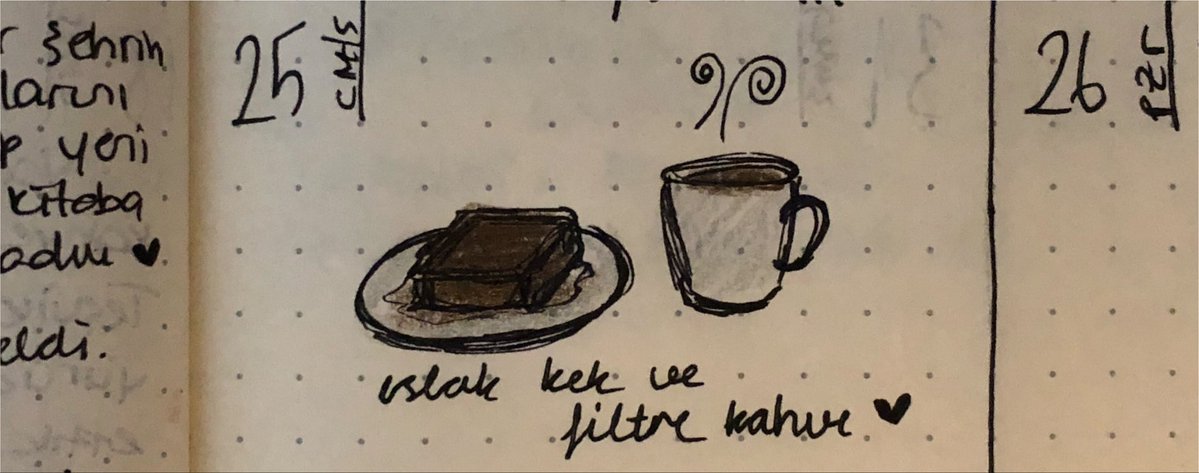 şehrin
larını
yeni
kitoba
♥
eldi.
25
CMTS
ıslak kek ve
filtre kahve ♥
26
PZR